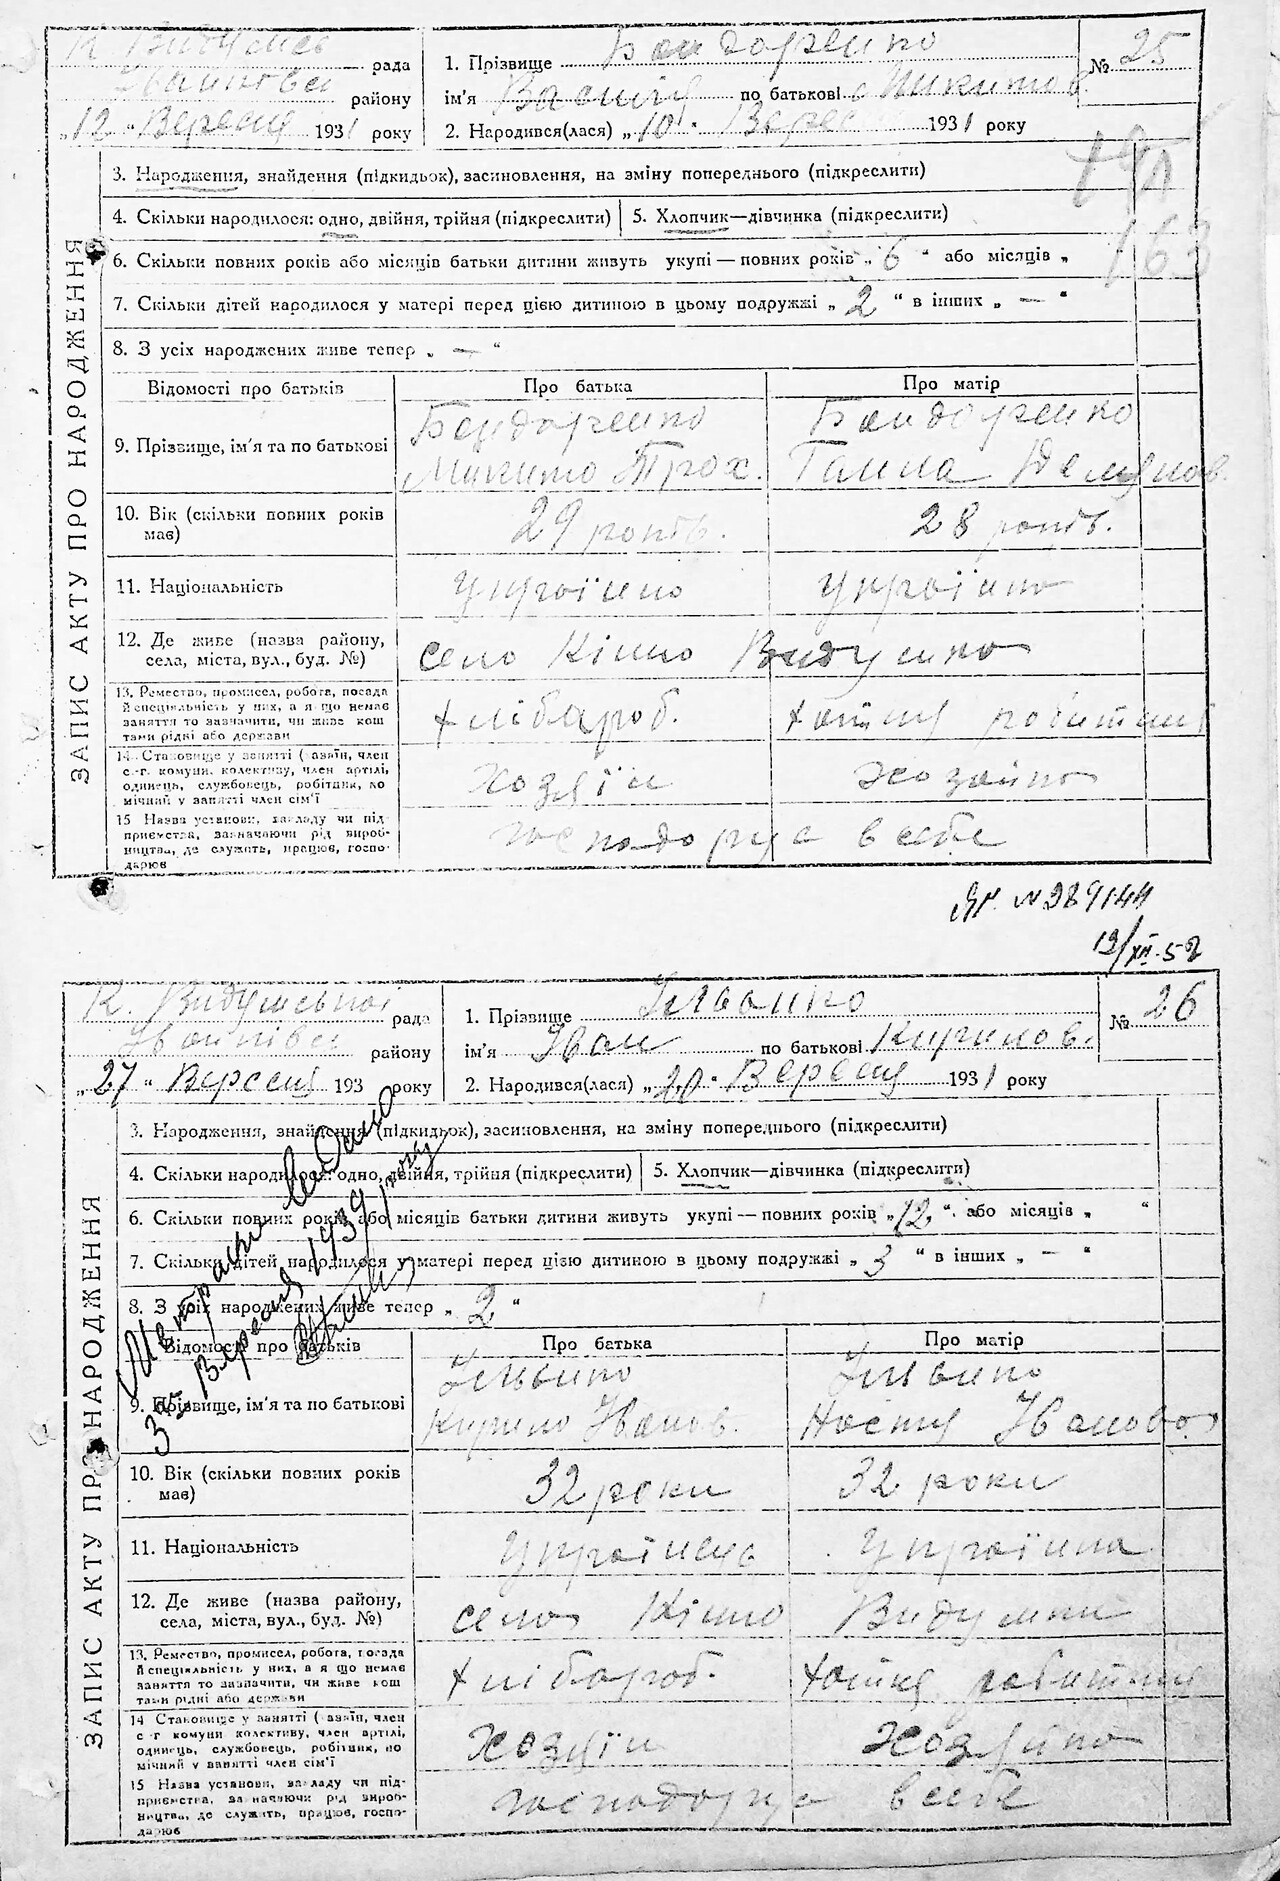 К. Видумсь рада
Іванковск району
„12“ Вересня 1931 року
1. Прізвище Бондаренко
ім'я Васииль по батькові Микитов.
2. Народився(лася) „10“ Вересня 1931 року
№ 25
ЗАПИС АКТУ ПРО НАРОДЖЕННЯ
3. Народження, знайдення (підкидьок), засиновлення, на зміну попереднього (підкреслити)
4. Скільки народилося: одно, двійня, трійня (підкреслити) 5. Хлопчик—дівчинка (підкреслити)
163
6. Скільки повних років або місяців батьки дитини живуть укупі—повних років „6“ або місяців „
7. Скільки дітей народилося у матері перед цією дитиною в цьому подружжі „2“ в інших „—“
8. З усіх народжених живе тепер „—“
Відомості про батьків Про батька Про матір
9. Прізвище, ім'я та по батькові
Бондаренко Бондаренко
Микито Трох. Ганна Демянов.
10. Вік (скільки повних років має) 29 років. 28 років.
11. Національність Україно Україно
12. Де живе (назва району, села, міста, вул., буд. №) село Кінно Видумно
13. Ремество, промисел, робота, посада й спеціяльність у них, а якщо немає заняття то зазначити, чи живе коштами рідні або держави
хлібароб. хатня робитниц
14. Становище у занятті (хазяїн, член с.-г. комуни, колективу, член артілі, одинець, службовець, робітник, помічний у занятті член сім'ї
хозяїн хозайко
15 Назва установи, закладу чи підприємства, зазначаючи рід виробництва, де служить, працює, господарює
господорує в себе
№ 289144
12/XII-52
К. Видумської рада
Іванківск району
„27“ Вересня 193 року
1. Прізвище
ім'я Іван по батькові Кирилов.
2. Народився(лася) „20“ Вересня 1931 року
№ 26
ЗАПИС АКТУ ПРО НАРОДЖЕННЯ
3. Народження, знайдення (підкидьок), засиновлення, на зміну попереднього (підкреслити)
4. Скільки народилося: одно, двійня, трійня (підкреслити) 5. Хлопчик—дівчинка (підкреслити)
6. Скільки повних років або місяців батьки дитини живуть укупі—повних років „12“ або місяців „ “
7. Скільки дітей народилося у матері перед цією дитиною в цьому подружжі „3“ в інших „—“
8. З усіх народжених живе тепер „2“
Метрику видано
3 Вересня 1939 року
Відомості про батьків Про батька Про матір
9. Прізвище, ім'я та по батькові
Кирило Іванов. Настя Іванова
10. Вік (скільки повних років має) 32 роки 32 роки
11. Національність Українець Україінка
12. Де живе (назва району, села, міста, вул., буд. №) село Кінно Видумки
13. Ремество, промисел, робота, посада й спеціяльність у них, а якщо немає заняття то зазначити, чи живе коштами рідні або держави
хлібороб. хатня робитниц
14 Становище у занятті (хазяїн, член с.-г. комуни колективу, член артілі, одинець, службовець, робітник, помічний у занятті член сім'ї
хозяїн хозяйко
15 Назва установи, закладу чи підприємства, зазначаючи рід виробництва, де служить, працює, господарює
господорує в себе